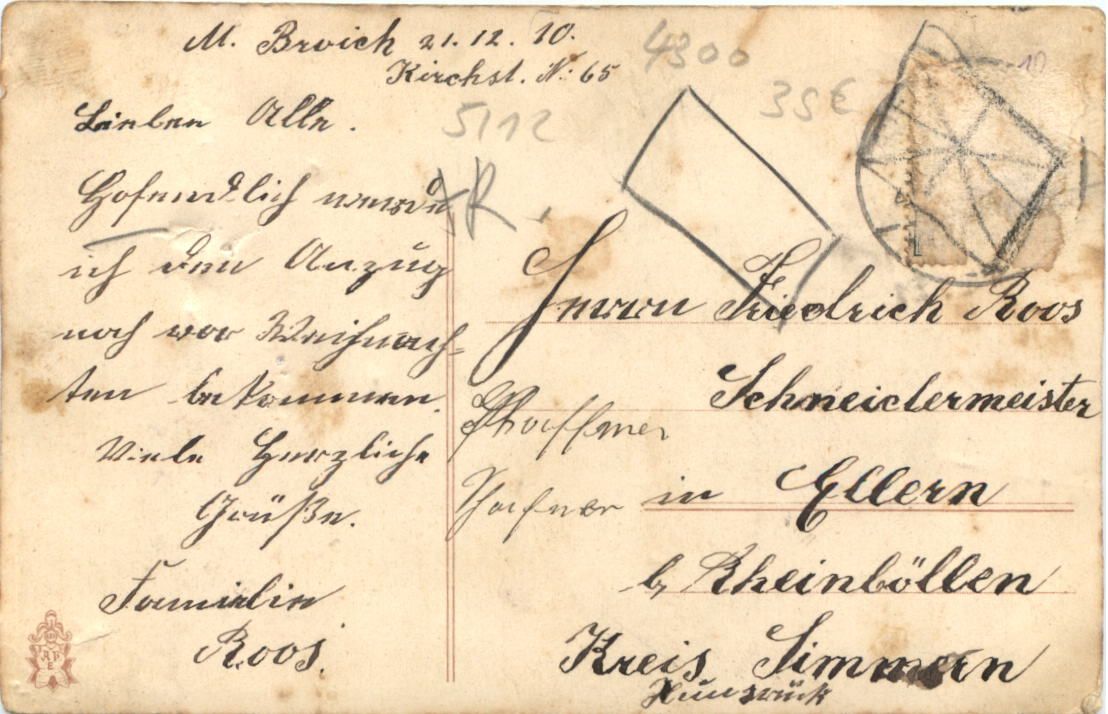 M. Broich 21.12.10.
Kirchst. N: 65
Lieben Alle.
Hofendlich werde
ich den Anzug
noch vor Weihnach-
ten bekommen.
Viele Herzliche
Grüße.
Familie
Roos.
4300
35€
5112
10
Herrn Friedrich Roos
Schneidermeister
in Ellern
b. Rheinböllen
Kreis Simmern
Hunsrück